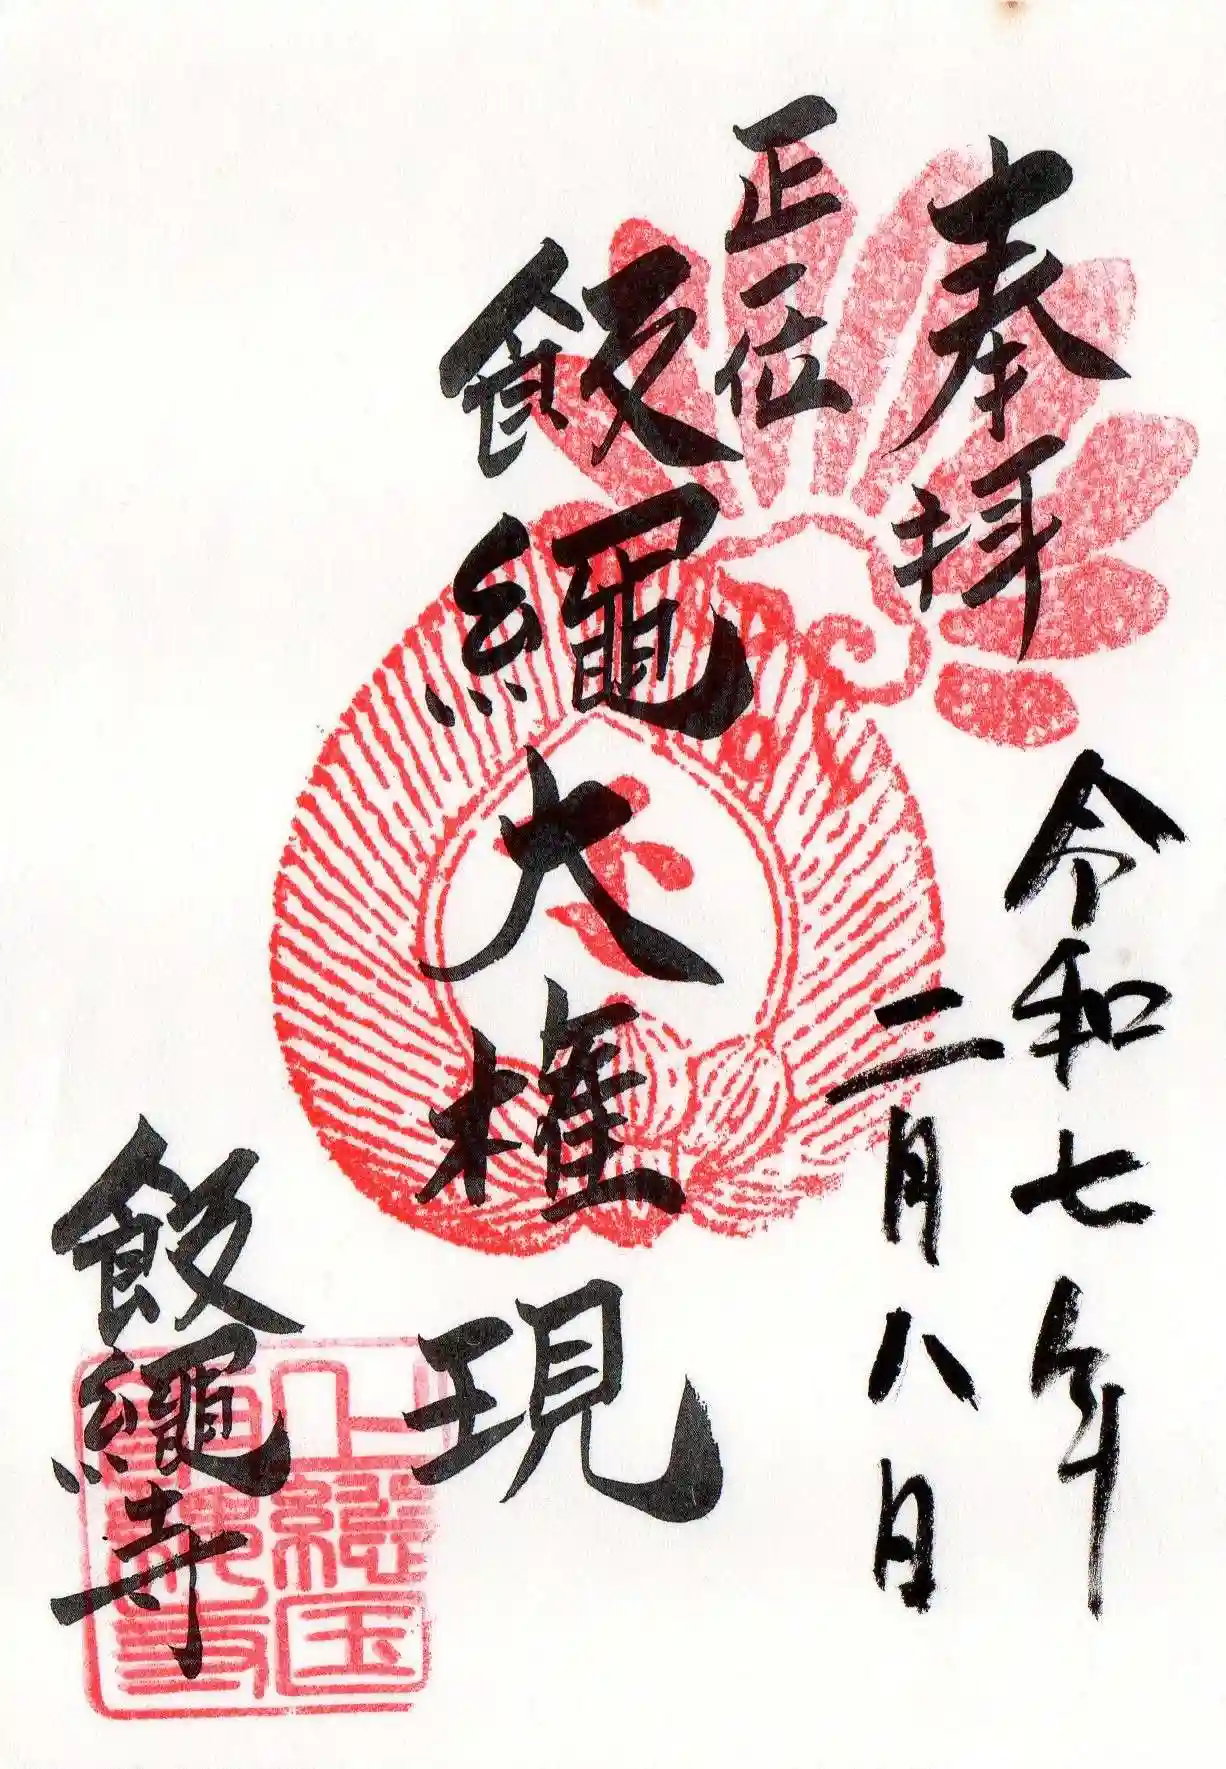 奉拝
令和七年
二月八日
正一位
飯繩大権現
飯繩寺
上総国
飯繩寺